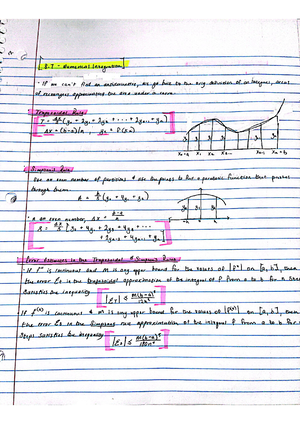 8.7 - Numerical Integration
• If we can't find an antiderivative, we go back to the orig definition of an integral, areas
of rectangles approximating the area under a curve.
Trapezoidal Rule
T = Δx/2 (y₀ + 2y₁ + 2y₂ + ... + 2yₙ₋₁ + yₙ)
Δx = (b-a)/n , yᵢ = f(xᵢ)
Simpsons Rule
Use an even number of partitions & use the points to fit a parabolic function that passes
through them
A = h/3 (y₀ + 4y₁ + y₂)
• n an even number, Δx = b-a/n
S = Δx/3 [y₀ + 4y₁ + 2y₂ + 4y₃ + ...
+ 2yₙ₋₂ + 4yₙ₋₁ + yₙ]
Error Estimates in the Trapezoidal & Simpsons Rules
• If f" is continuous and M is any upper bound for the values of |f"| on [a,b], then
the error Eₜ in the trapezoidal approximation of the integral of f from a to b for n steps
satisfies the inequality
|Eₜ| ≤ M(b-a)³/12n²
• If f⁽⁴⁾ is continuous & M is any upper bound for the values of |f⁽⁴⁾| on [a,b], then
the error Eₛ in the Simpsons rule approximation of the integral of f from a to b for n
steps satisfies the inequality
|Eₛ| ≤ M(b-a)⁵/180n⁴